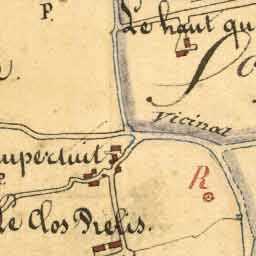 P.
Le haut qu
Vicinal
upertuit
R
le Clos Prelis.